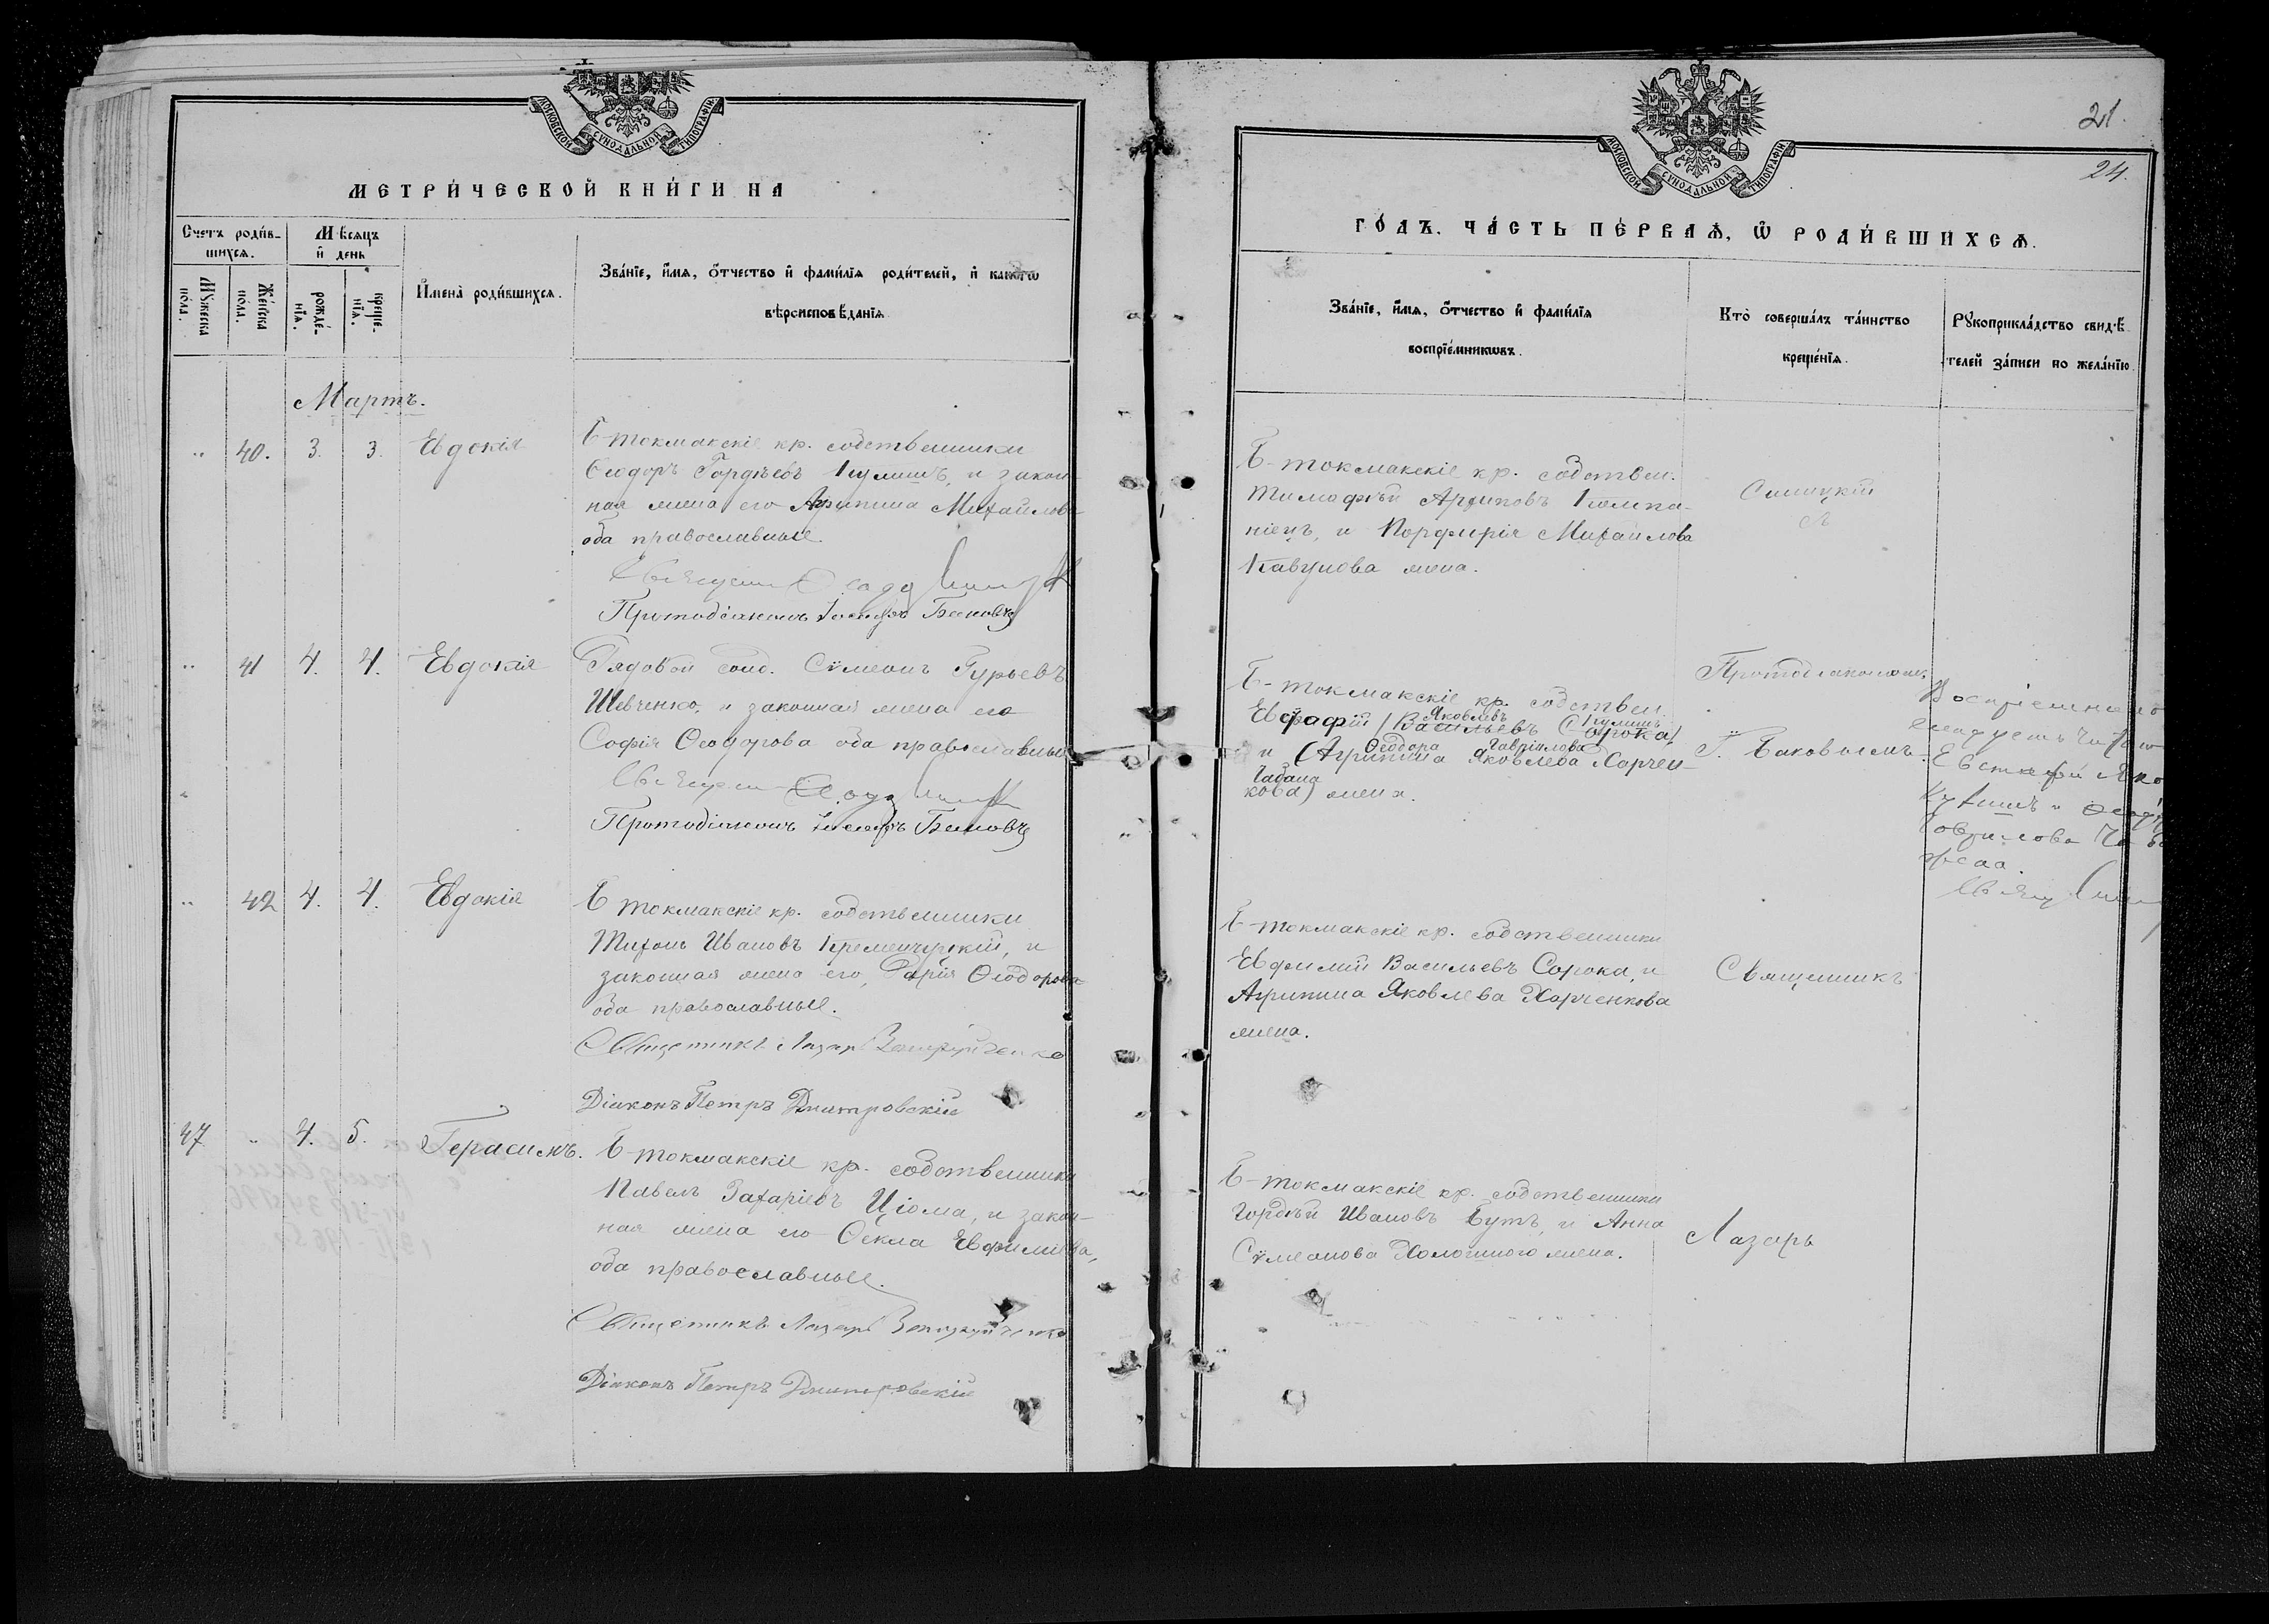 МОСКОВСКОЙ СУНОДАЛЬНОЙ ТИПОГРАФІИ
МЕТРИЧЕСКОЙ КНИГИ НА
Счетъ родив-
шихся.
Мѣсяцъ
и день
Мужеска
пола.
Женска
пола.
рожде-
нія.
креще-
нія.
Имена родившихся.
Званіе, имя, отчество и фамилія родителей, и какого
вѣроисповѣданія
Мартъ.
" 40. 3. 3. Евдокія
Б-токмакскіе кр. собственники
Ѳеодоръ Гордѣевъ Кулишъ, и закон-
ная жена его Агрипина Михайлова
оба православные.
Протодіаконъ
" 41 4. 4. Евдокія
Рядовой солд. Сѵмеонъ Гурьевъ
Шевченко, и законная жена его
Софія Ѳеодорова оба православные
Протодіаконъ
" 42 4. 4. Евдокія
Б токмакскіе кр. собственники
Тихонъ Ивановъ Кременчурскій, и
законная жена его, Дарія Ѳеодорова
оба православные.
Священникъ Лазарь
Діаконъ Петръ Дмитровскій
47 " 4. 5. Герасимъ.
Б-токмакскіе кр. собственники
Павелъ Захаріевъ Цюма, и закон-
ная жена его Ѳекла Евфиміева,
оба православные.
Священникъ Лазарь
Діаконъ Петръ Дмитровскій
21.
24.
МОСКОВСКОЙ СУНОДАЛЬНОЙ ТИПОГРАФІИ
ГОДЪ. ЧАСТЬ ПЕРВАЯ, Ѡ РОДИВШИХСЯ.
Званіе, имя, отчество и фамилія
воспріемниковъ.
Кто совершалъ таинство
крещенія.
Рукоприкладство свидѣ-
телей записи по желанію.
Б-токмакскіе кр. собствен.
Тимофѣй Архиповъ Компа-
ніецъ, и Порфирія Михайлова
Кавунова жена.
Синицкій
Б-токмакскіе кр. собствен.
Яковлевъ Кулишъ
Васильевъ Сорока)
Ѳеодора Гавріилова
и (Агрипина Яковлева Харчен-
Чабана
кова) жена.
Протодіакономъ
І. Баковымъ.
Б-токмакскіе кр. собственники
Евфимій Васильевъ Сорока, и
Агрипина Яковлева Харченкова
жена.
Священникъ
Б-токмакскіе кр. собственники
Гордѣй Ивановъ Бутъ, и Анна
Сѵмеонова жена.
Лазарь